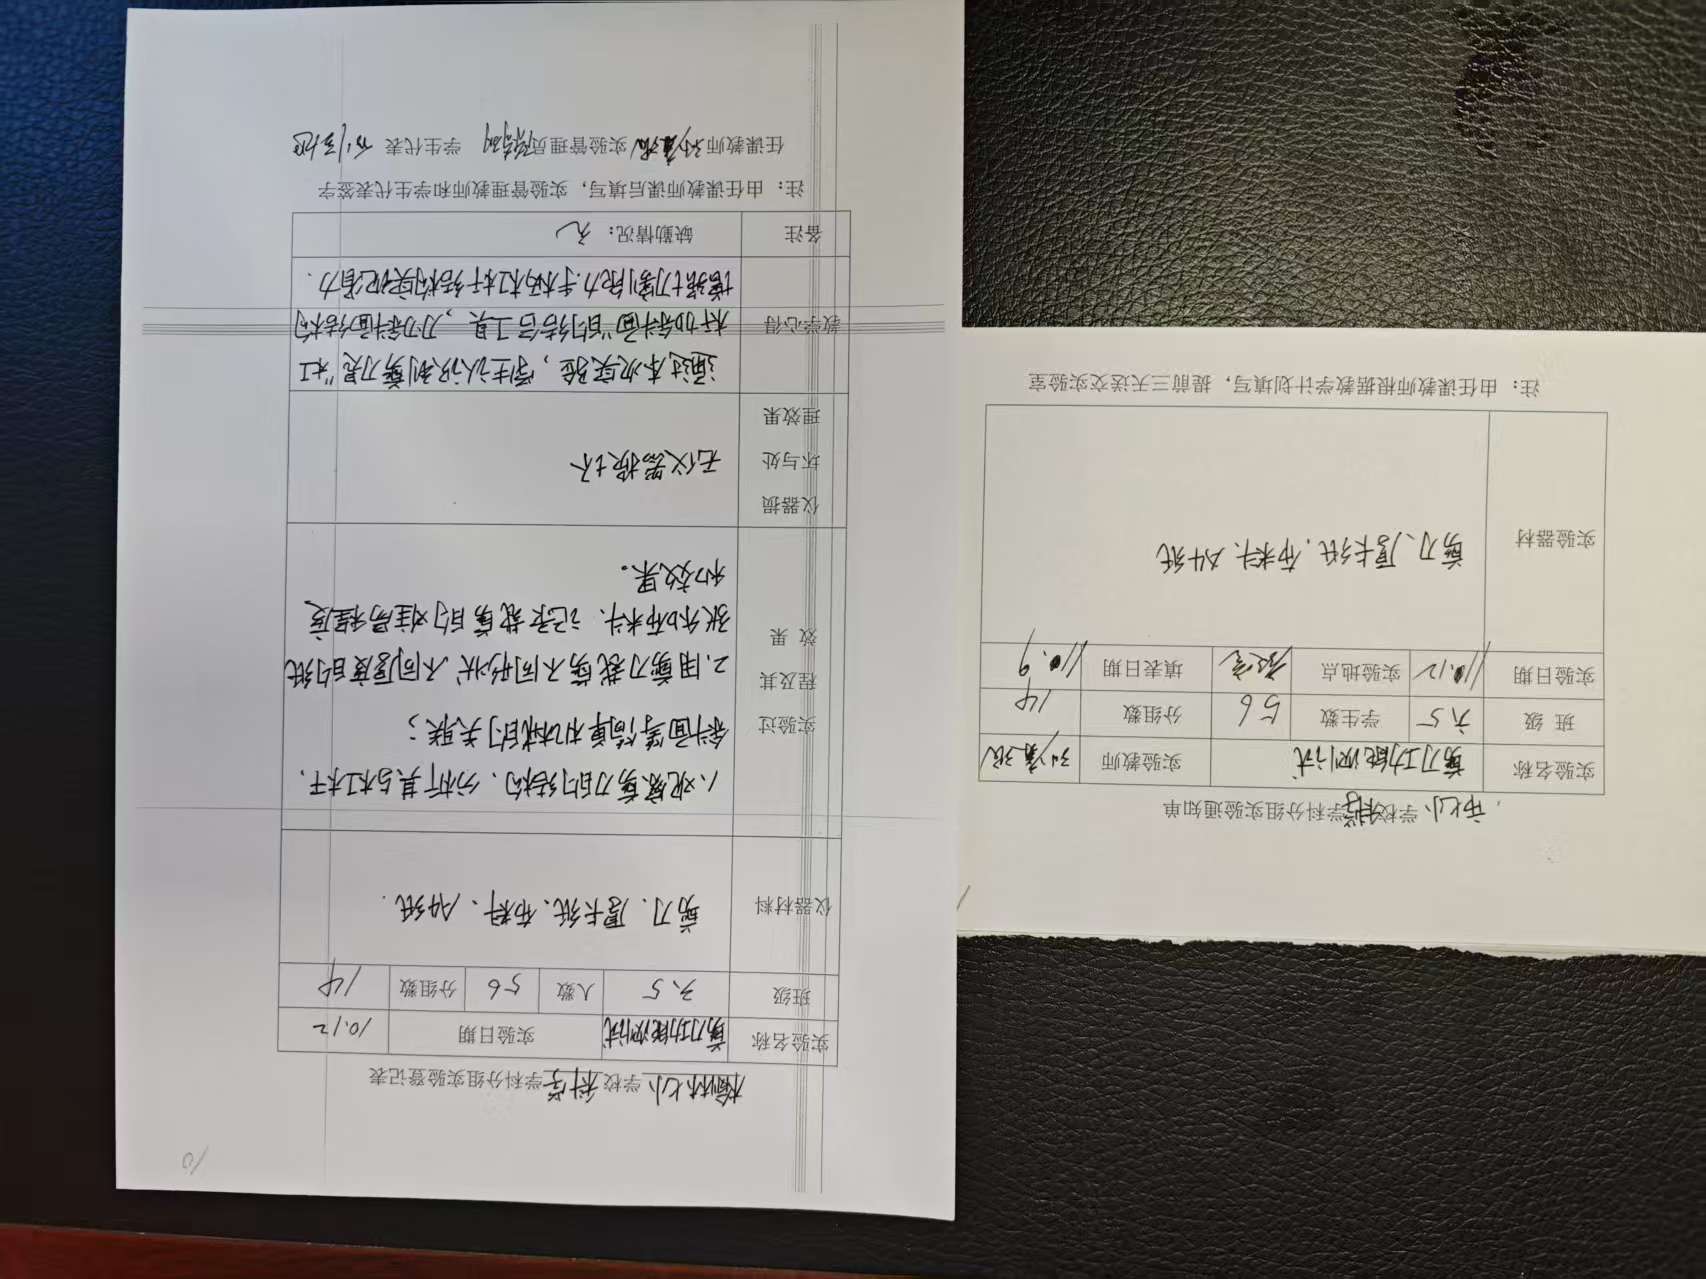 市七小学校科学学科分组实验通知单
实验名称 剪刀功能测试 实验教师
班 级 六.5 学生数 56 分组数 14
实验日期 10.12 实验地点 教室 填表日期 10.9
实验器材 剪刀、厚卡纸、布料、A4纸
注：由任课教师根据教学计划填写，提前三天送交实验室
榆林七小学校科学学科分组实验登记表
实验名称 剪刀功能测试 实验日期 10.12
班级 六.5 人数 56 分组数 14
仪器材料 剪刀、厚卡纸、布料、A4纸.
实验过
程及其
效 果
1、观察剪刀的结构、分析其与杠杆、
斜面等简单机械的关联；
2.用剪刀裁剪不同形状、不同厚度的纸
张和布料、记录裁剪的难易程度
和效果。
仪器损
坏与处
理效果
无仪器损坏
教学心得
通过本次实验，学生认识到剪刀是“杠
杆加斜面”的结合工具，刀刃斜面结构
增强切割能力.手柄杠杆结构实现省力.
备注 缺勤情况：无
注：由任课教师课后填写，实验管理教师和学生代表签字
任课教师 实验管理员 学生代表
10